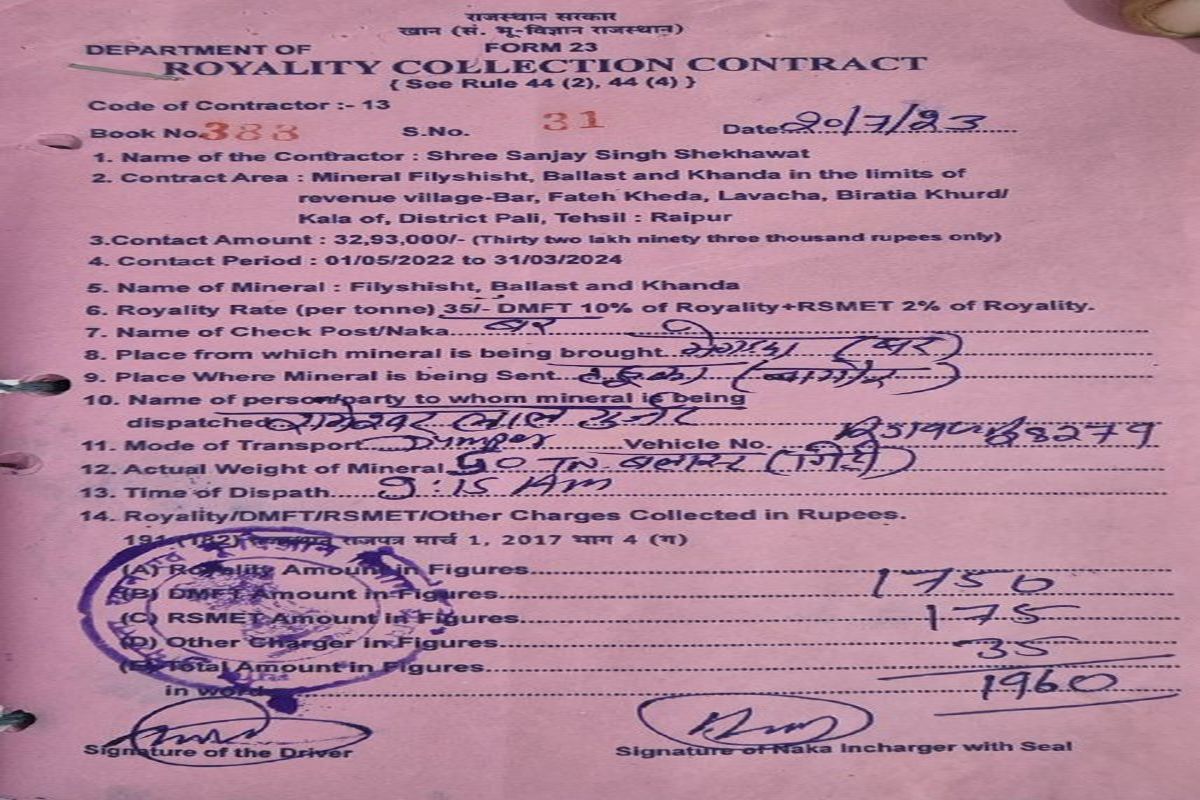 राजस्थान सरकार
खान (सं. भू-विज्ञान राजस्थान)
DEPARTMENT OF FORM 23
ROYALITY COLLECTION CONTRACT
{ See Rule 44 (2), 44 (4) }
Code of Contractor :- 13
Book No. 388 S.No. 31 Date: 20/7/23
1. Name of the Contractor : Shree Sanjay Singh Shekhawat
2. Contract Area : Mineral Filyshisht, Ballast and Khanda in the limits of
revenue village-Bar, Fateh Kheda, Lavacha, Biratia Khurd/
Kala of, District Pali, Tehsil : Raipur
3.Contact Amount : 32,93,000/- (Thirty two lakh ninety three thousand rupees only)
4. Contact Period : 01/05/2022 to 31/03/2024
5. Name of Mineral : Filyshisht, Ballast and Khanda
6. Royality Rate (per tonne) 35/- DMFT 10% of Royality+RSMET 2% of Royality.
7. Name of Check Post/Naka बर
8. Place from which mineral is being brought (बर)
9. Place Where Mineral is being Sent
10. Name of person/party to whom mineral is being
dispatched रामेश्वर लाल
11. Mode of Transport Dumper Vehicle No. 8279
12. Actual Weight of Mineral 50 TN (गिट्टी)
13. Time of Dispath 9:15 Am
14. Royality/DMFT/RSMET/Other Charges Collected in Rupees.
191 (182) राजपत्र मार्च 1, 2017 भाग 4 (ग)
(A) Royality Amount in Figures
(B) DMFT Amount in Figures 1750
(C) RSMET Amount in Figures 175
(D) Other Charger in Figures 35
(E) Total Amount in Figures 1960
in word
Signature of the Driver Signature of Naka Incharger with Seal